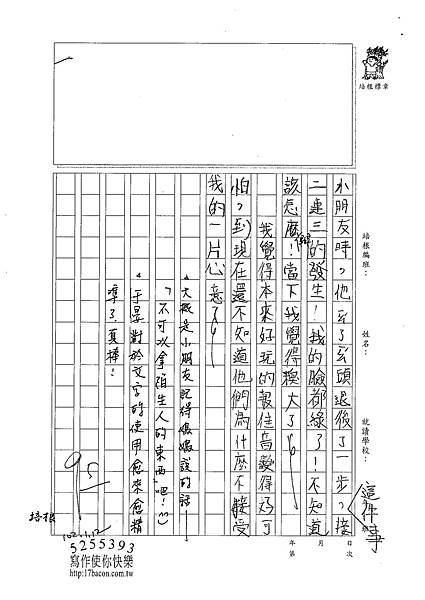 培根標章
培根編班：
姓名：
就讀學校：
這件事
年 月 日
第 次
小朋友時，他豆了豆頭退後了一步，接
二連三的發生！我的臉都綠了！不知道
該怎麼辦！當下我覺得糗大了。
我覺得本來好玩的報佳音變得好可
怕，到現在還不知道他們為什麼不接受
我的一片心意了。
大概是小朋友記得媽媽說的話—
「不可以拿陌生人的東西」吧！
于晏對於文字的使用愈來愈精
準了真棒！
95
培根
102.1.12
5255393
寫作使你快樂
http://www.17bacon.com.tw